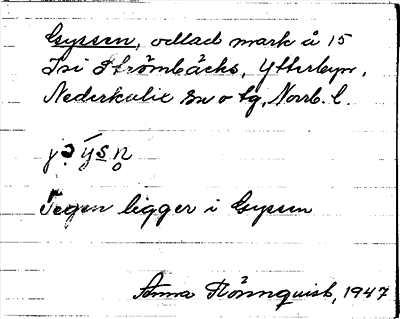 Gyssen, odlad mark å 15
Isi Strömbäcks, Ytterbyn,
Nederkalix sn o tg, Norrb. l.
Tegen ligger i Gyssen
Anna Rönnquist, 1947